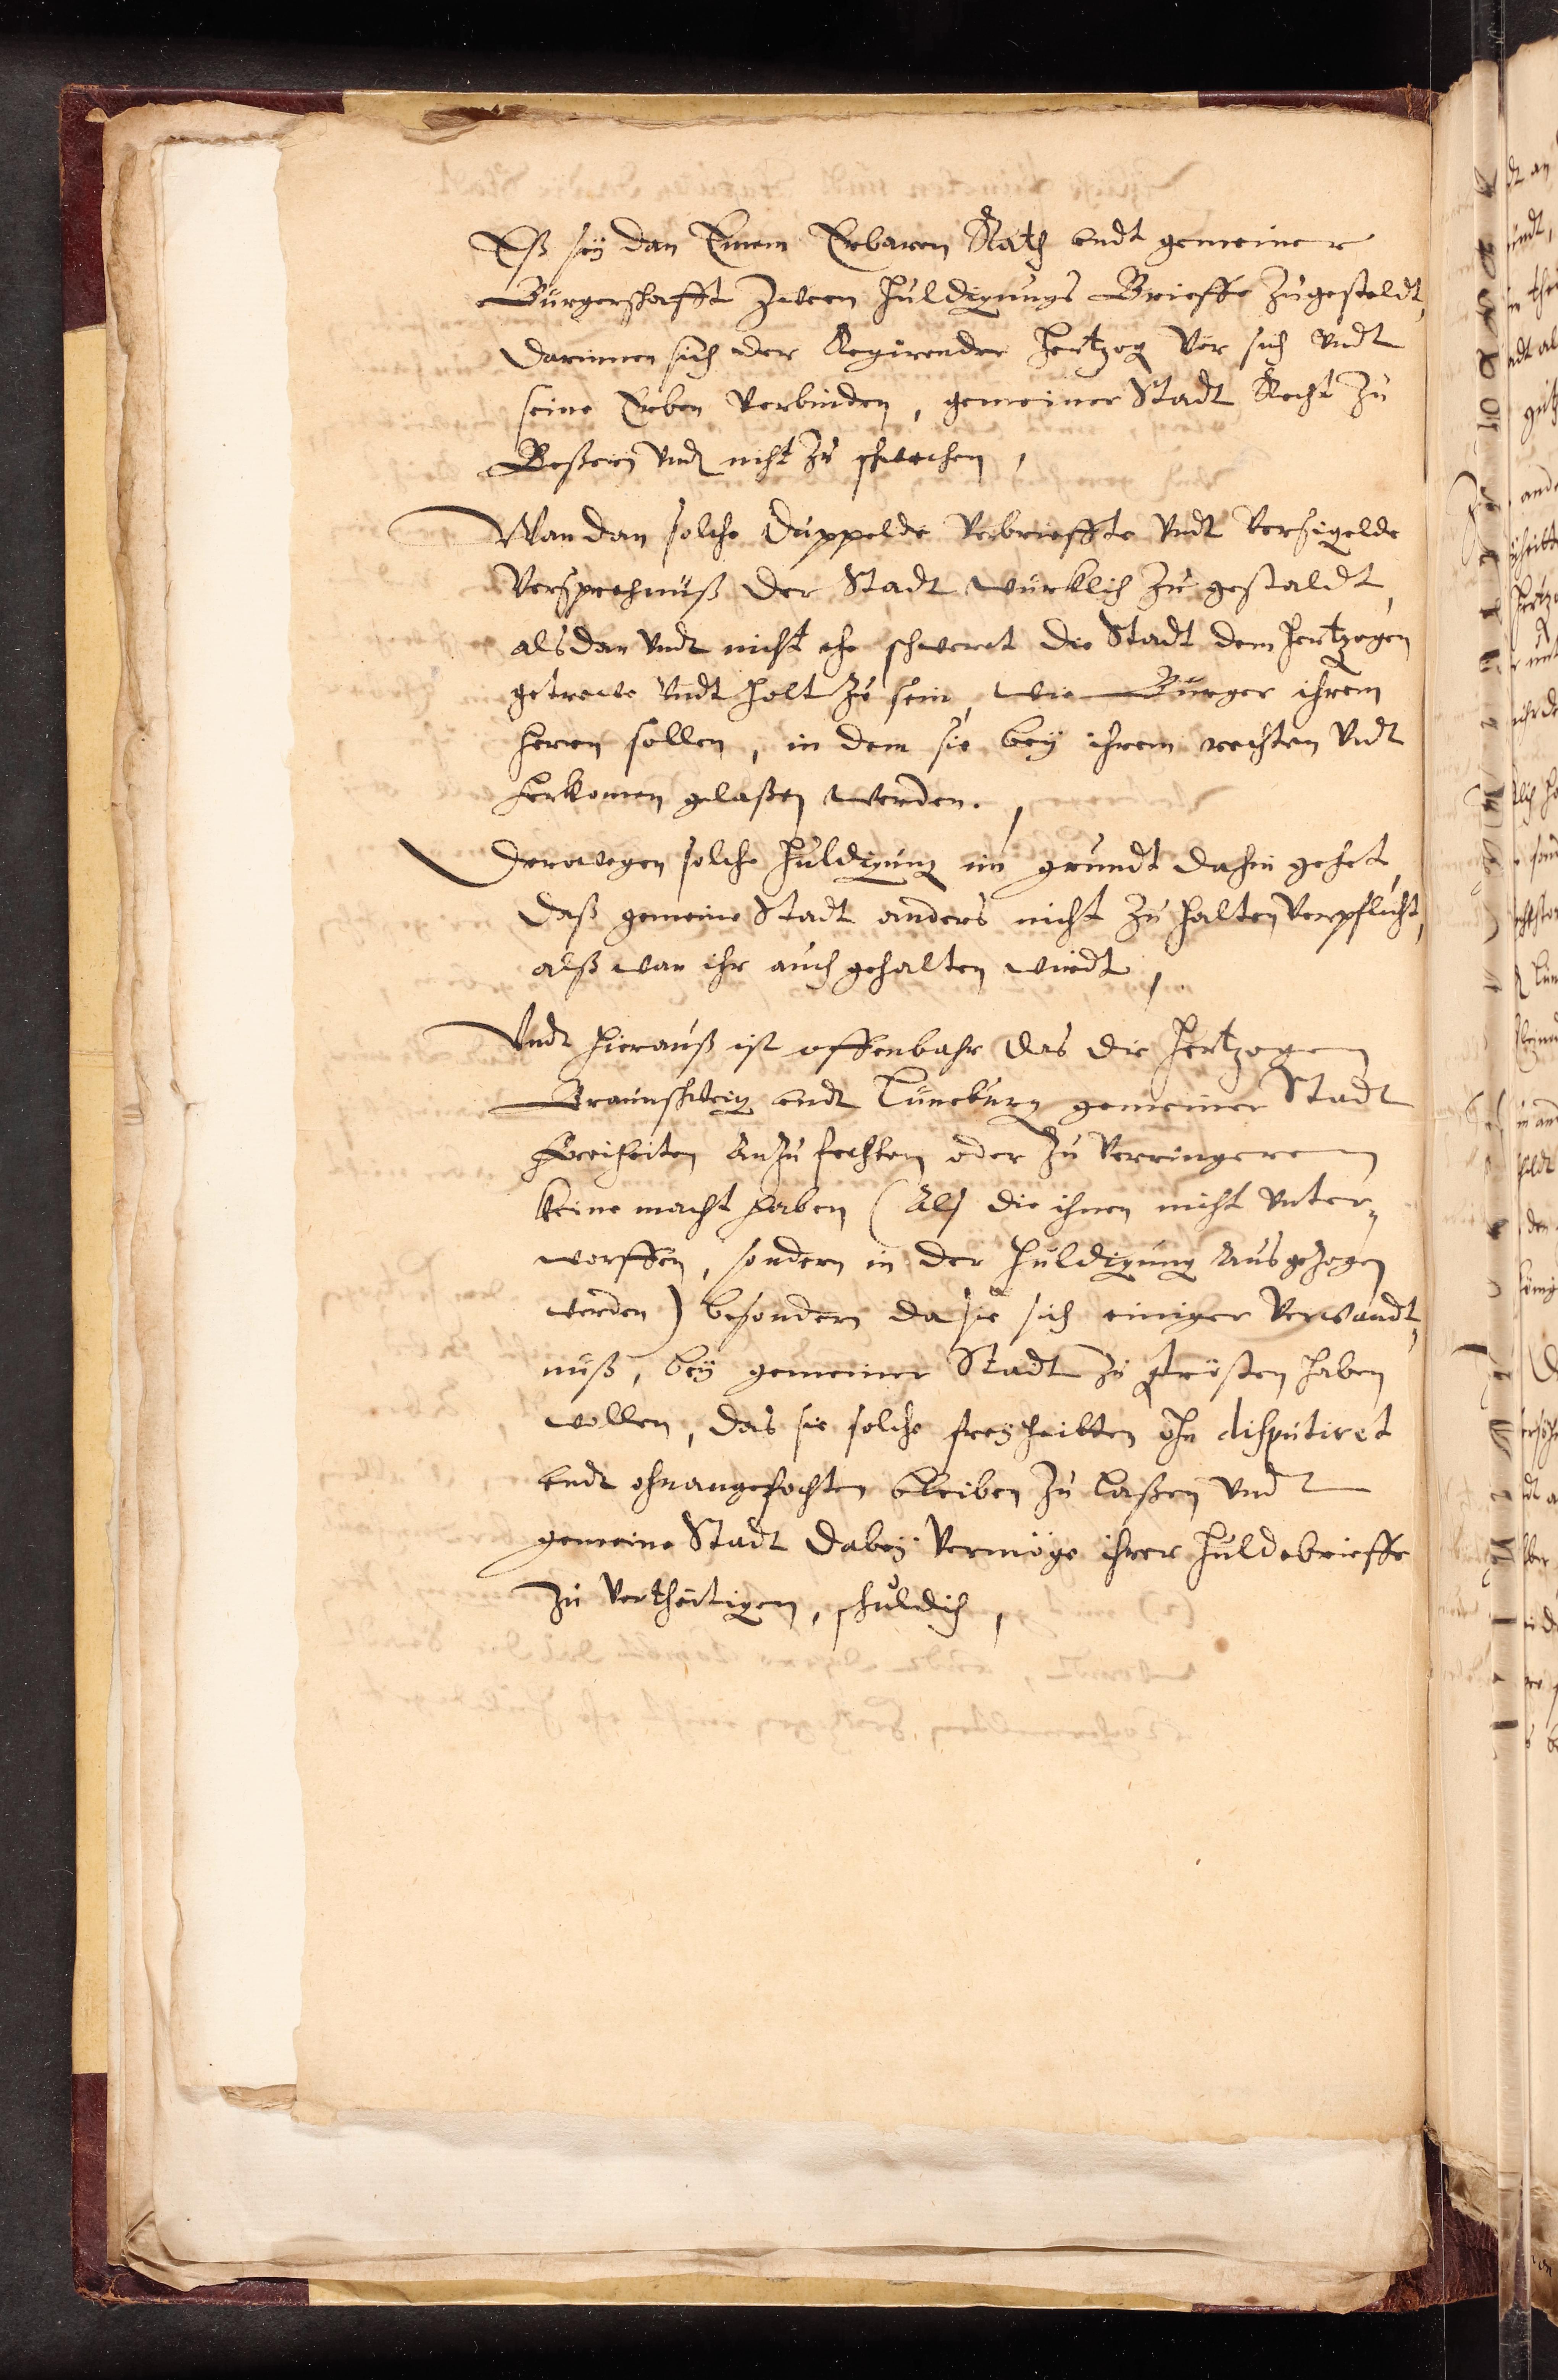 Eß seÿ dan Einem Erbaren Rath undt gemeiner
Bürgerschafft Zween Huldigungs Brieffe Zugesteldt,
darinnen sich der Regirender Hertzog Vor sich Vndt
seine Erben Verbinden, gemeiner Stadt Recht Zu
Beßeren Vnd nicht Zu schwechen,
Wan dan solche düppelde Verbrieffte Vndt Versigelde
Versprechnüß der Stadt würcklich Zu gestaldt,
alsdan Vndt nicht ehe schweret die Stadt dem Hertzogen
getrewe Vndt holt Zu sein, wie Bürger ihrem
heren sollen, in dem sie beÿ ihrem rechten Vndt
herkomen gelaßen werden.,
Derowegen solche Huldigung im grundt dahin gehet,
daß gemeine Stadt anders nicht Zu halten Verpflicht,
alß wan ihr auch gehalten wirdt,
Vndt hierauß ist offenbahr das die Hertzogen
Braunschweig undt Lüneburg gemeiner Stadt
Freiheiten Anzufechten oder Zu Verringeren
keine macht haben (Als die ihnen nicht Vnter-
worffen, sondern in der Huldigung Ausgezogen
werden) besondern da sie sich einiger Verwandt-
nüß, beÿ gemeiner Stadt Zu getrösten haben
wollen, das sie solche freÿheitten ohn disputiret
undt ohnangefochten bleiben Zu laßen Vndt
gemeine Stadt dabeÿ Vermöge ihrer Huldebrieffe
Zu Vertheitigen, schuldich,